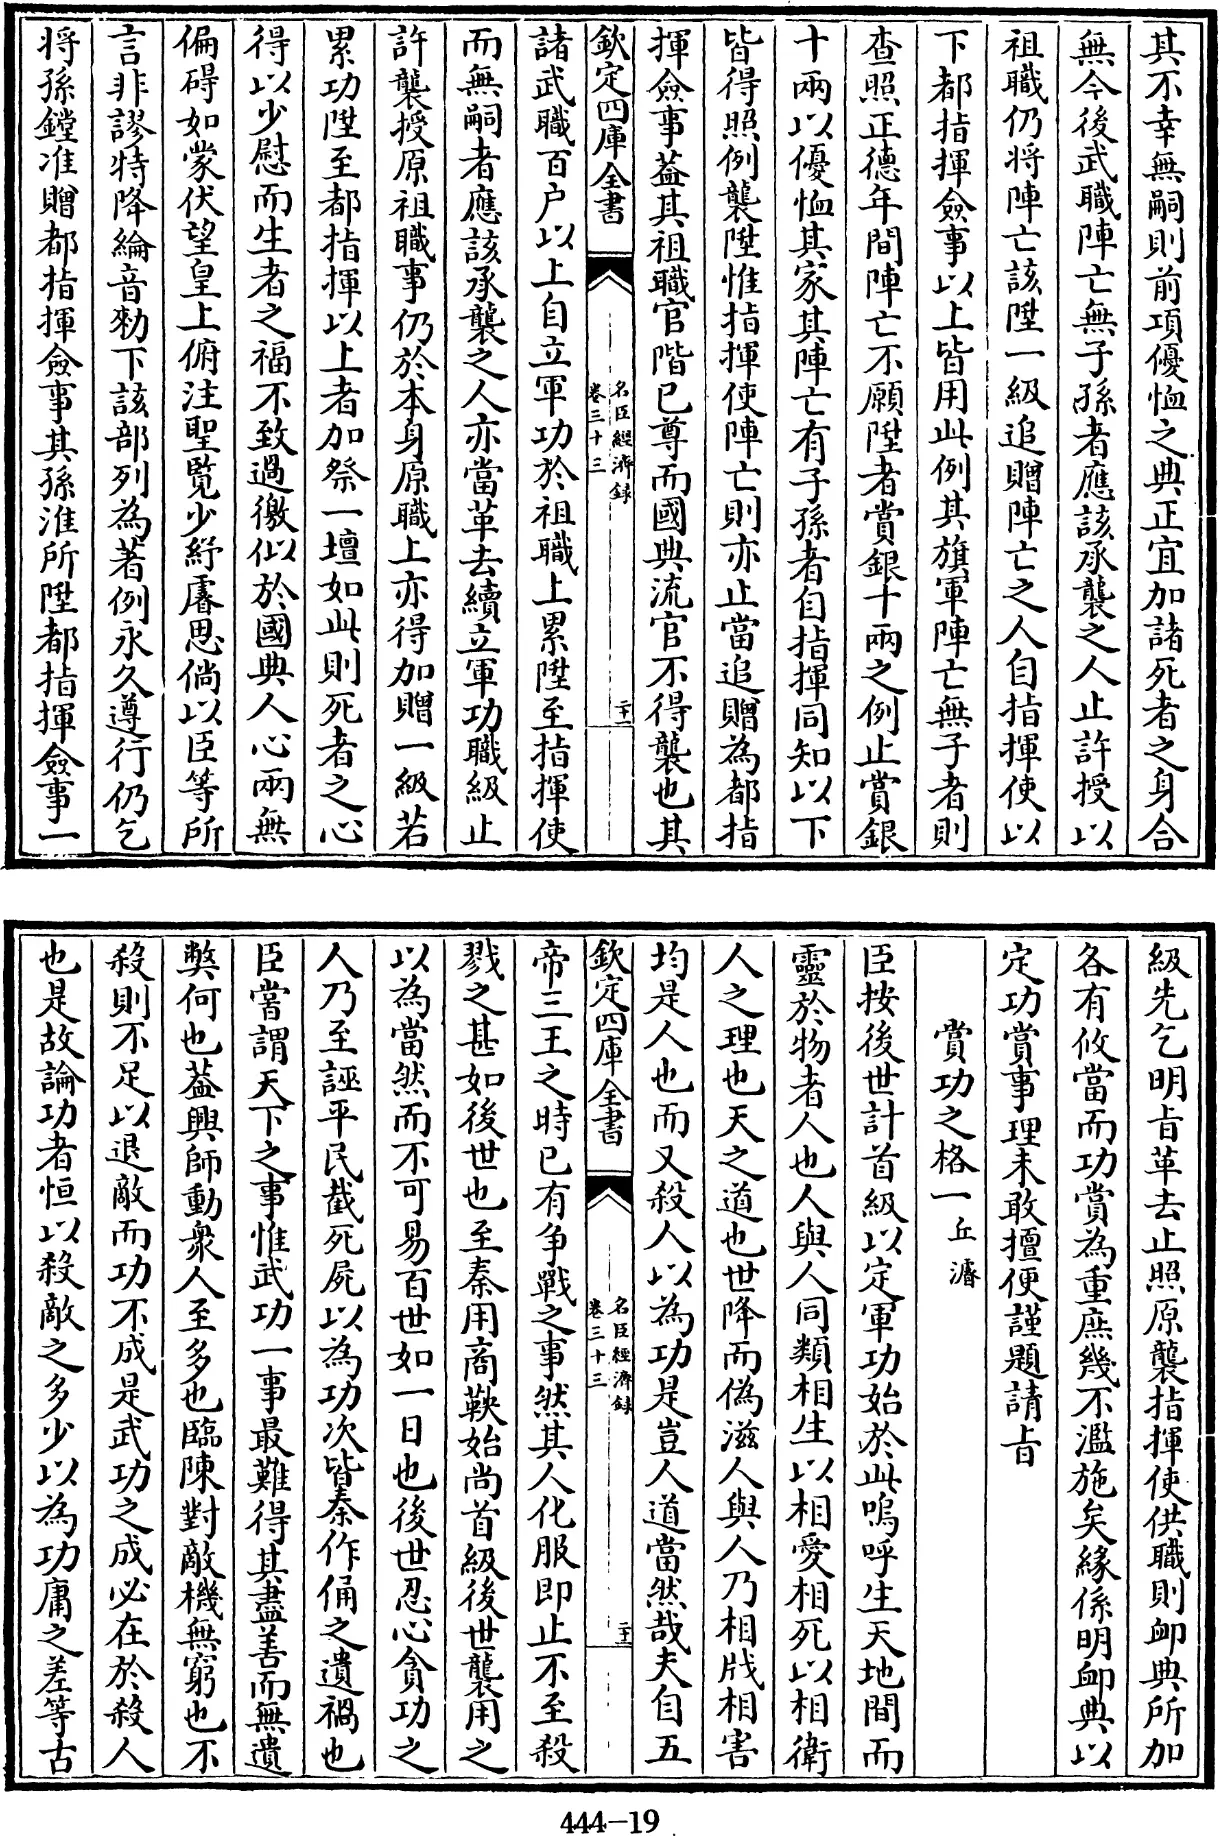 其不幸無嗣則前項優恤之典正宜加諸死者之身合
無今後武職陣亡無子孫者應該承襲之人止許授以
祖職仍將陣亡該陞一級追贈陣亡之人自指揮使以
下都指揮僉事以上皆用此例其旗軍陣亡無子者則
查照正德年間陣亡不願陞者賞銀十兩之例止賞銀
十兩以優恤其家其陣亡有子孫者自指揮同知以下
皆得照例襲陞惟指揮使陣亡則亦止當追贈為都指
揮僉事葢其祖職官階已尊而國典流官不得襲也其
欽定四庫全書
名臣經濟録
卷三十三
二十一
諸武職百户以上自立軍功於祖職上累陞至指揮使
而無嗣者應該承襲之人亦當革去續立軍功職級止
許襲授原祖職事仍於本身原職上亦得加贈一級若
累功陞至都指揮以上者加祭一壇如此則死者之心
得以少慰而生者之福不致過徼似於國典人心兩無
偏碍如蒙伏望皇上俯注聖覽少紓睿思倘以臣等所
言非謬特降綸音勑下該部列為著例永久遵行仍乞
將孫鏜准贈都指揮僉事其孫淮所陞都指揮僉事一
級先乞明㫖革去止照原襲指揮使供職則卹典所加
各有攸當而功賞為重庶幾不濫施矣緣係明卹典以
定功賞事理未敢擅便謹題請㫖
賞功之格一 丘濬
臣按後世計首級以定軍功始於此嗚呼生天地間而
靈於物者人也人與人同類相生以相愛相死以相衛
人之理也天之道也世降而偽滋人與人乃相戕相害
均是人也而又殺人以為功是豈人道當然哉夫自五
欽定四庫全書
名臣經濟録
卷三十三
二十一
帝三王之時已有争戰之事然其人化服即止不至殺
戮之甚如後世也至秦用商鞅始尚首級後世襲用之
以為當然而不可易百世如一日也後世忍心貪功之
人乃至誣平民截死屍以為功次皆秦作俑之遺禍也
臣嘗謂天下之事惟武功一事最難得其盡善而無遺
獘何也葢興師動衆人至多也臨陳對敵機無窮也不
殺則不足以退敵而功不成是武功之成必在於殺人
也是故論功者恒以殺敵之多少以為功庸之差等古
444-19